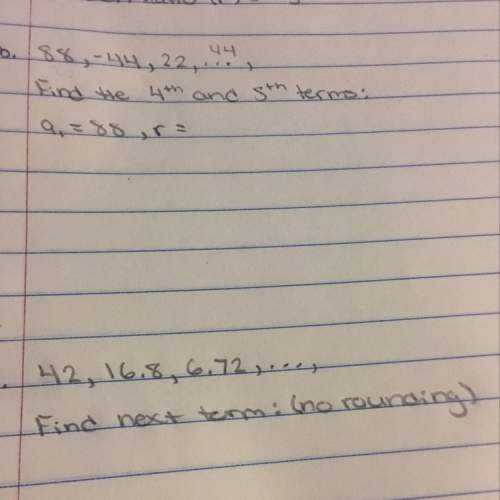 b. 88, -44, 22, 44 ...,
Find the 4th and 5th terms:
a₁ = 88, r =
42, 16.8, 6.72, ...,
Find next term: (no rounding)